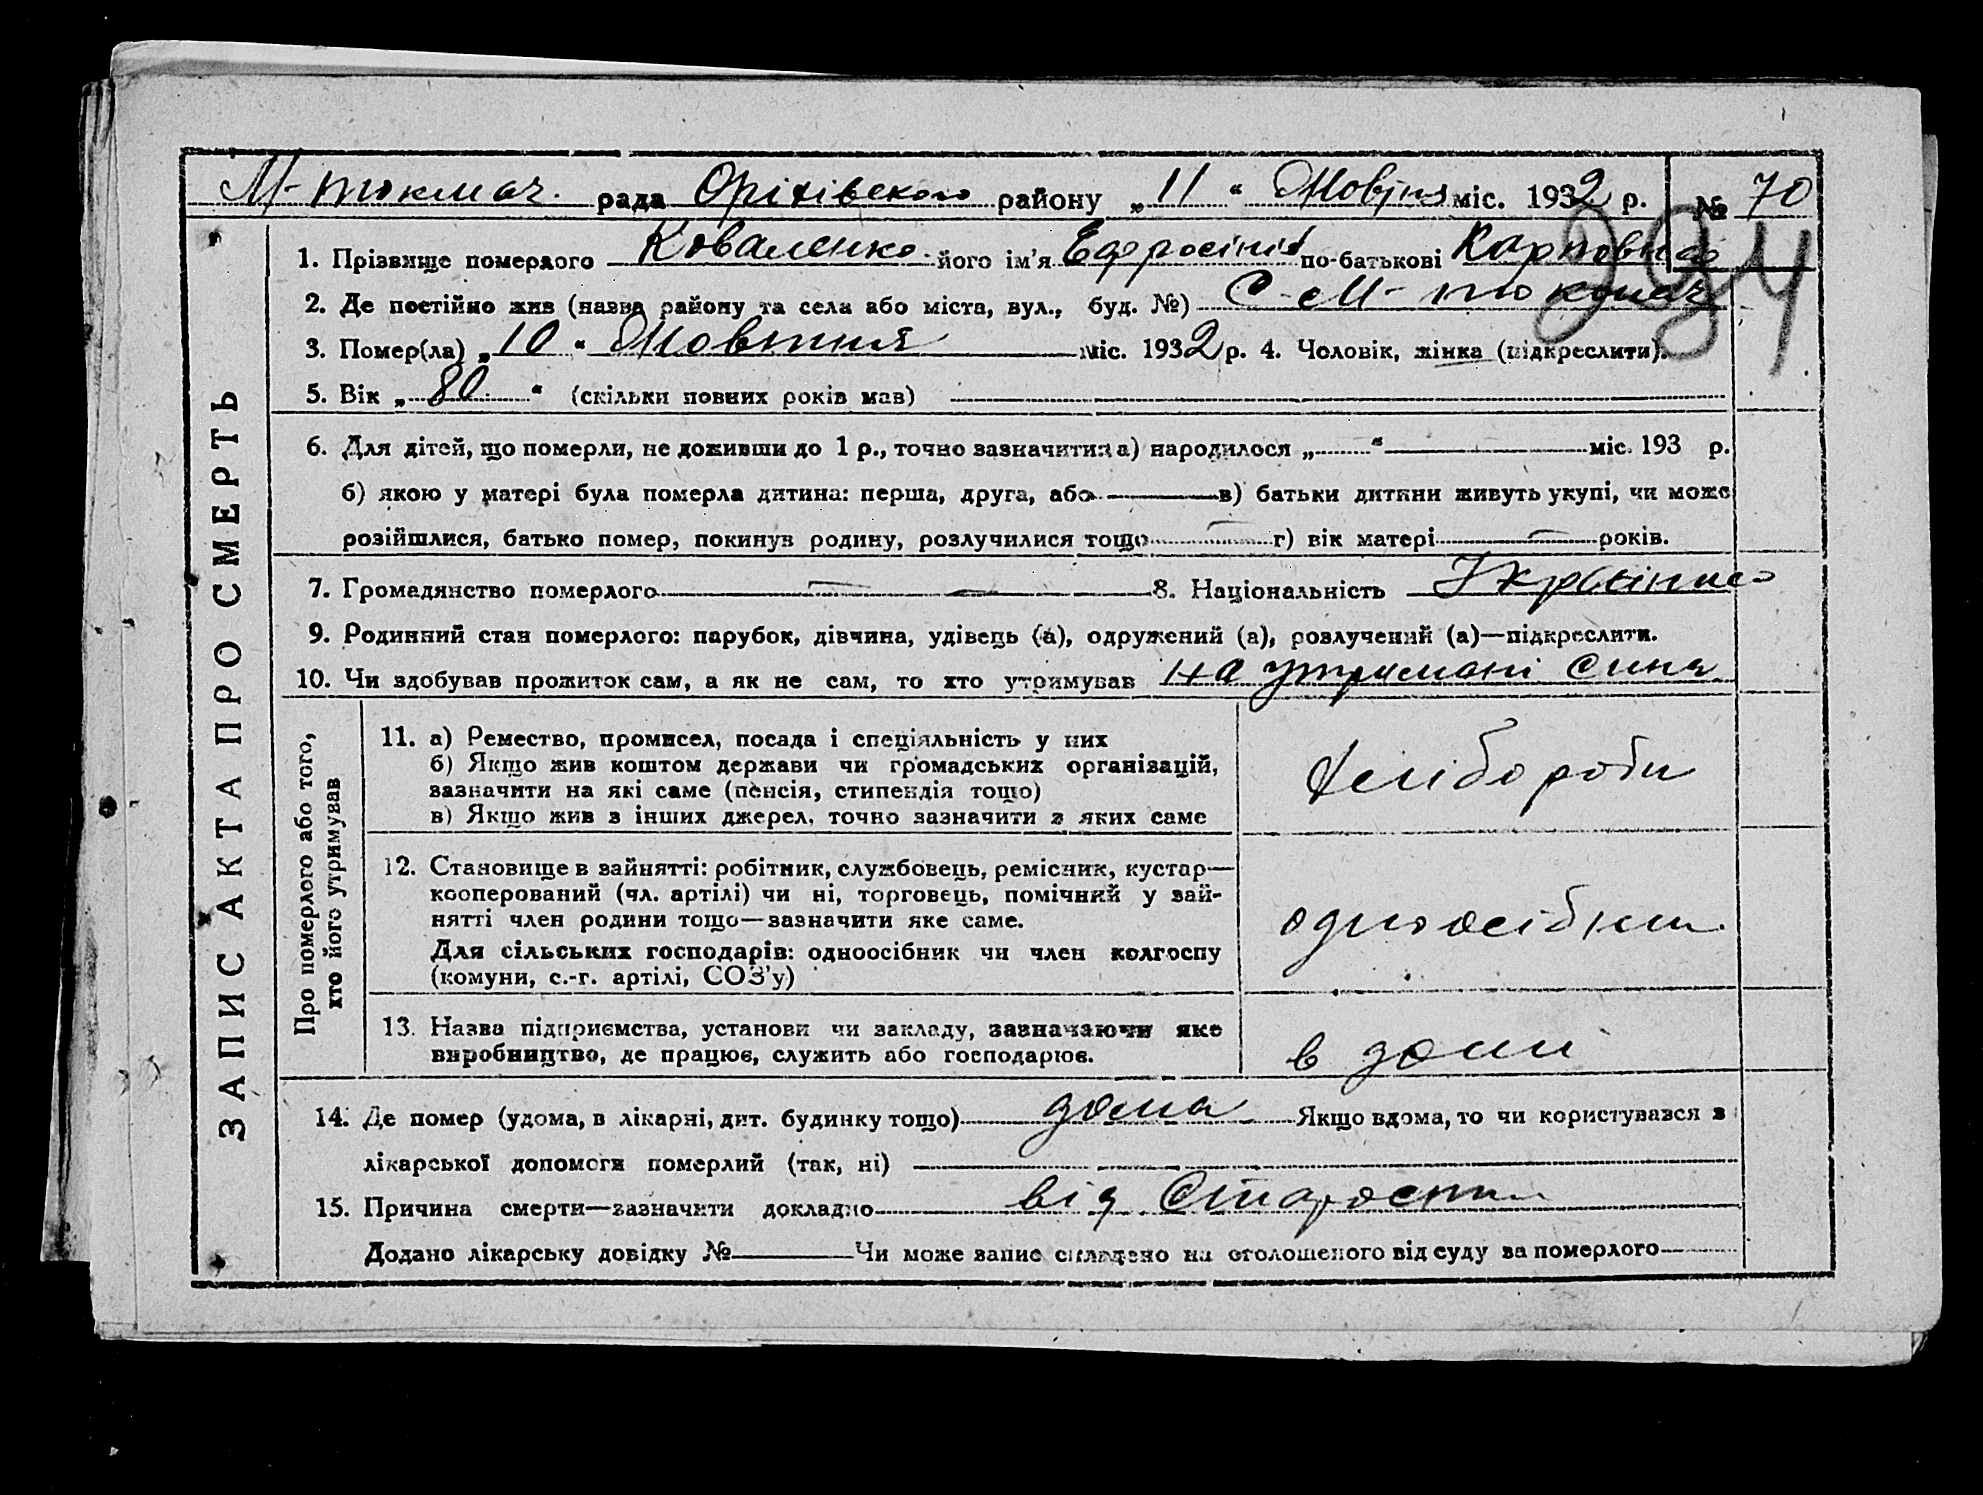 М-токмач. рада Оріхівского району „11“ Жовтня міс. 1932 р. № 70
294
ЗАПИС АКТА ПРО СМЕРТЬ
1. Прізвище померлого Коваленко його ім'я Ефросинія по-батькові Карповна
2. Де постійно жив (назва району та села або міста, вул., буд. №) С-М-токмач
3. Помер(ла) „10“ Жовтня міс. 1932 р. 4. Чоловік, жінка (підкреслити).
5. Вік „80“ (скільки повних років мав)
6. Для дітей, що померли, не доживши до 1 р., точно зазначити: а) народилося „ “ міс. 193 р.
б) якою у матері була померла дитина: перша, друга, або в) батьки дитини живуть укупі, чи може
розійшлися, батько помер, покинув родину, розлучилися тощо г) вік матері років.
7. Громадянство померлого — 8. Національність Українка
9. Родинний стан померлого: парубок, дівчина, удівець (а), одружений (а), розлучений (а)—підкреслити.
10. Чи здобував прожиток сам, а як не сам, то хто утримував на утримані сина
Про померлого або того,
хто його утримував
11. а) Ремество, промисел, посада і спеціяльність у них
б) Якщо жив коштом держави чи громадських організацій,
зазначити на які саме (пенсія, стипендія тощо)
в) Якщо жив з інших джерел, точно зазначити з яких саме
хлібороби
12. Становище в зайнятті: робітник, службовець, ремісник, кустар—
кооперований (чл. артілі) чи ні, торговець, помічний у зай-
нятті член родини тощо—зазначити яке саме.
Для сільських господарів: одноосібник чи член колгоспу
(комуни, с.-г. артілі, СОЗ'у)
одноосібник
13. Назва підприємства, установи чи закладу, зазначаючи яке
виробництво, де працює, служить або господарює.
в домі
14. Де помер (удома, в лікарні, дит. будинку тощо) дома Якщо вдома, то чи користувався з
лікарської допомоги померлий (так, ні)
15. Причина смерти—зазначити докладно від Старости
Додано лікарську довідку № Чи може запис складено на оголошеного від суду за померлого